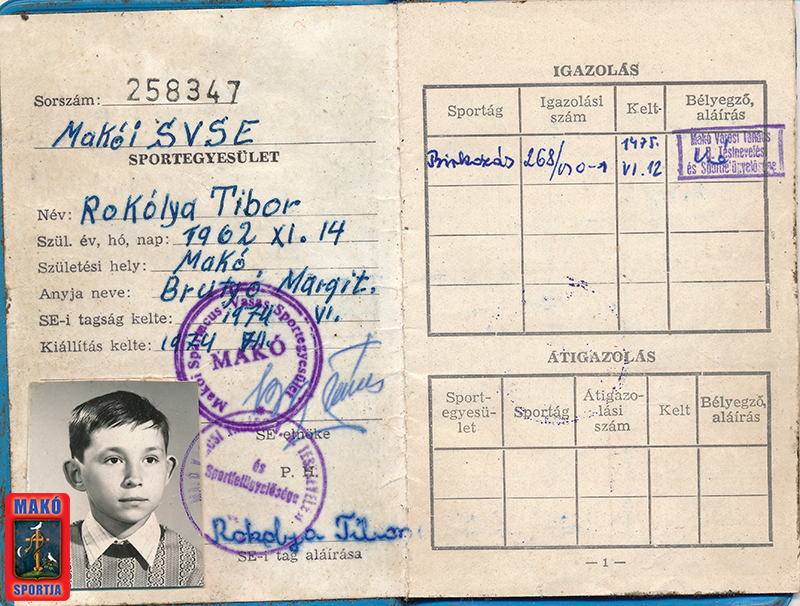 Sorszám: 258347
Makói SVSE
SPORTEGYESÜLET
Név: Rokólya Tibor
Szül. év, hó, nap: 1962 XI. 14
Születési hely: Makó
Anyja neve: Brutyó Margit.
SE-i tagság kelte: 1974 VI.
Kiállítás kelte: 1974 VII.
Makói Spartacus-Vasas Sportegyesület
MAKÓ
SE elnöke
P. H.
és
Sportfelügyelősége
Rokolya Tibor
SE-i tag aláírása
MAKÓ
SPORTJA
IGAZOLÁS
Sportág Igazolási szám Kelt- Bélyegző, aláírás
Birkozás 268/ 1975. VI. 12
Makó Városi Tanács
Testnevelési
és Sportfelügyelősége
ÁTIGAZOLÁS
Sport-egyesü-let Sportág Átigazo-lási szám Kelt Bélyegző, aláírás
— 1 —